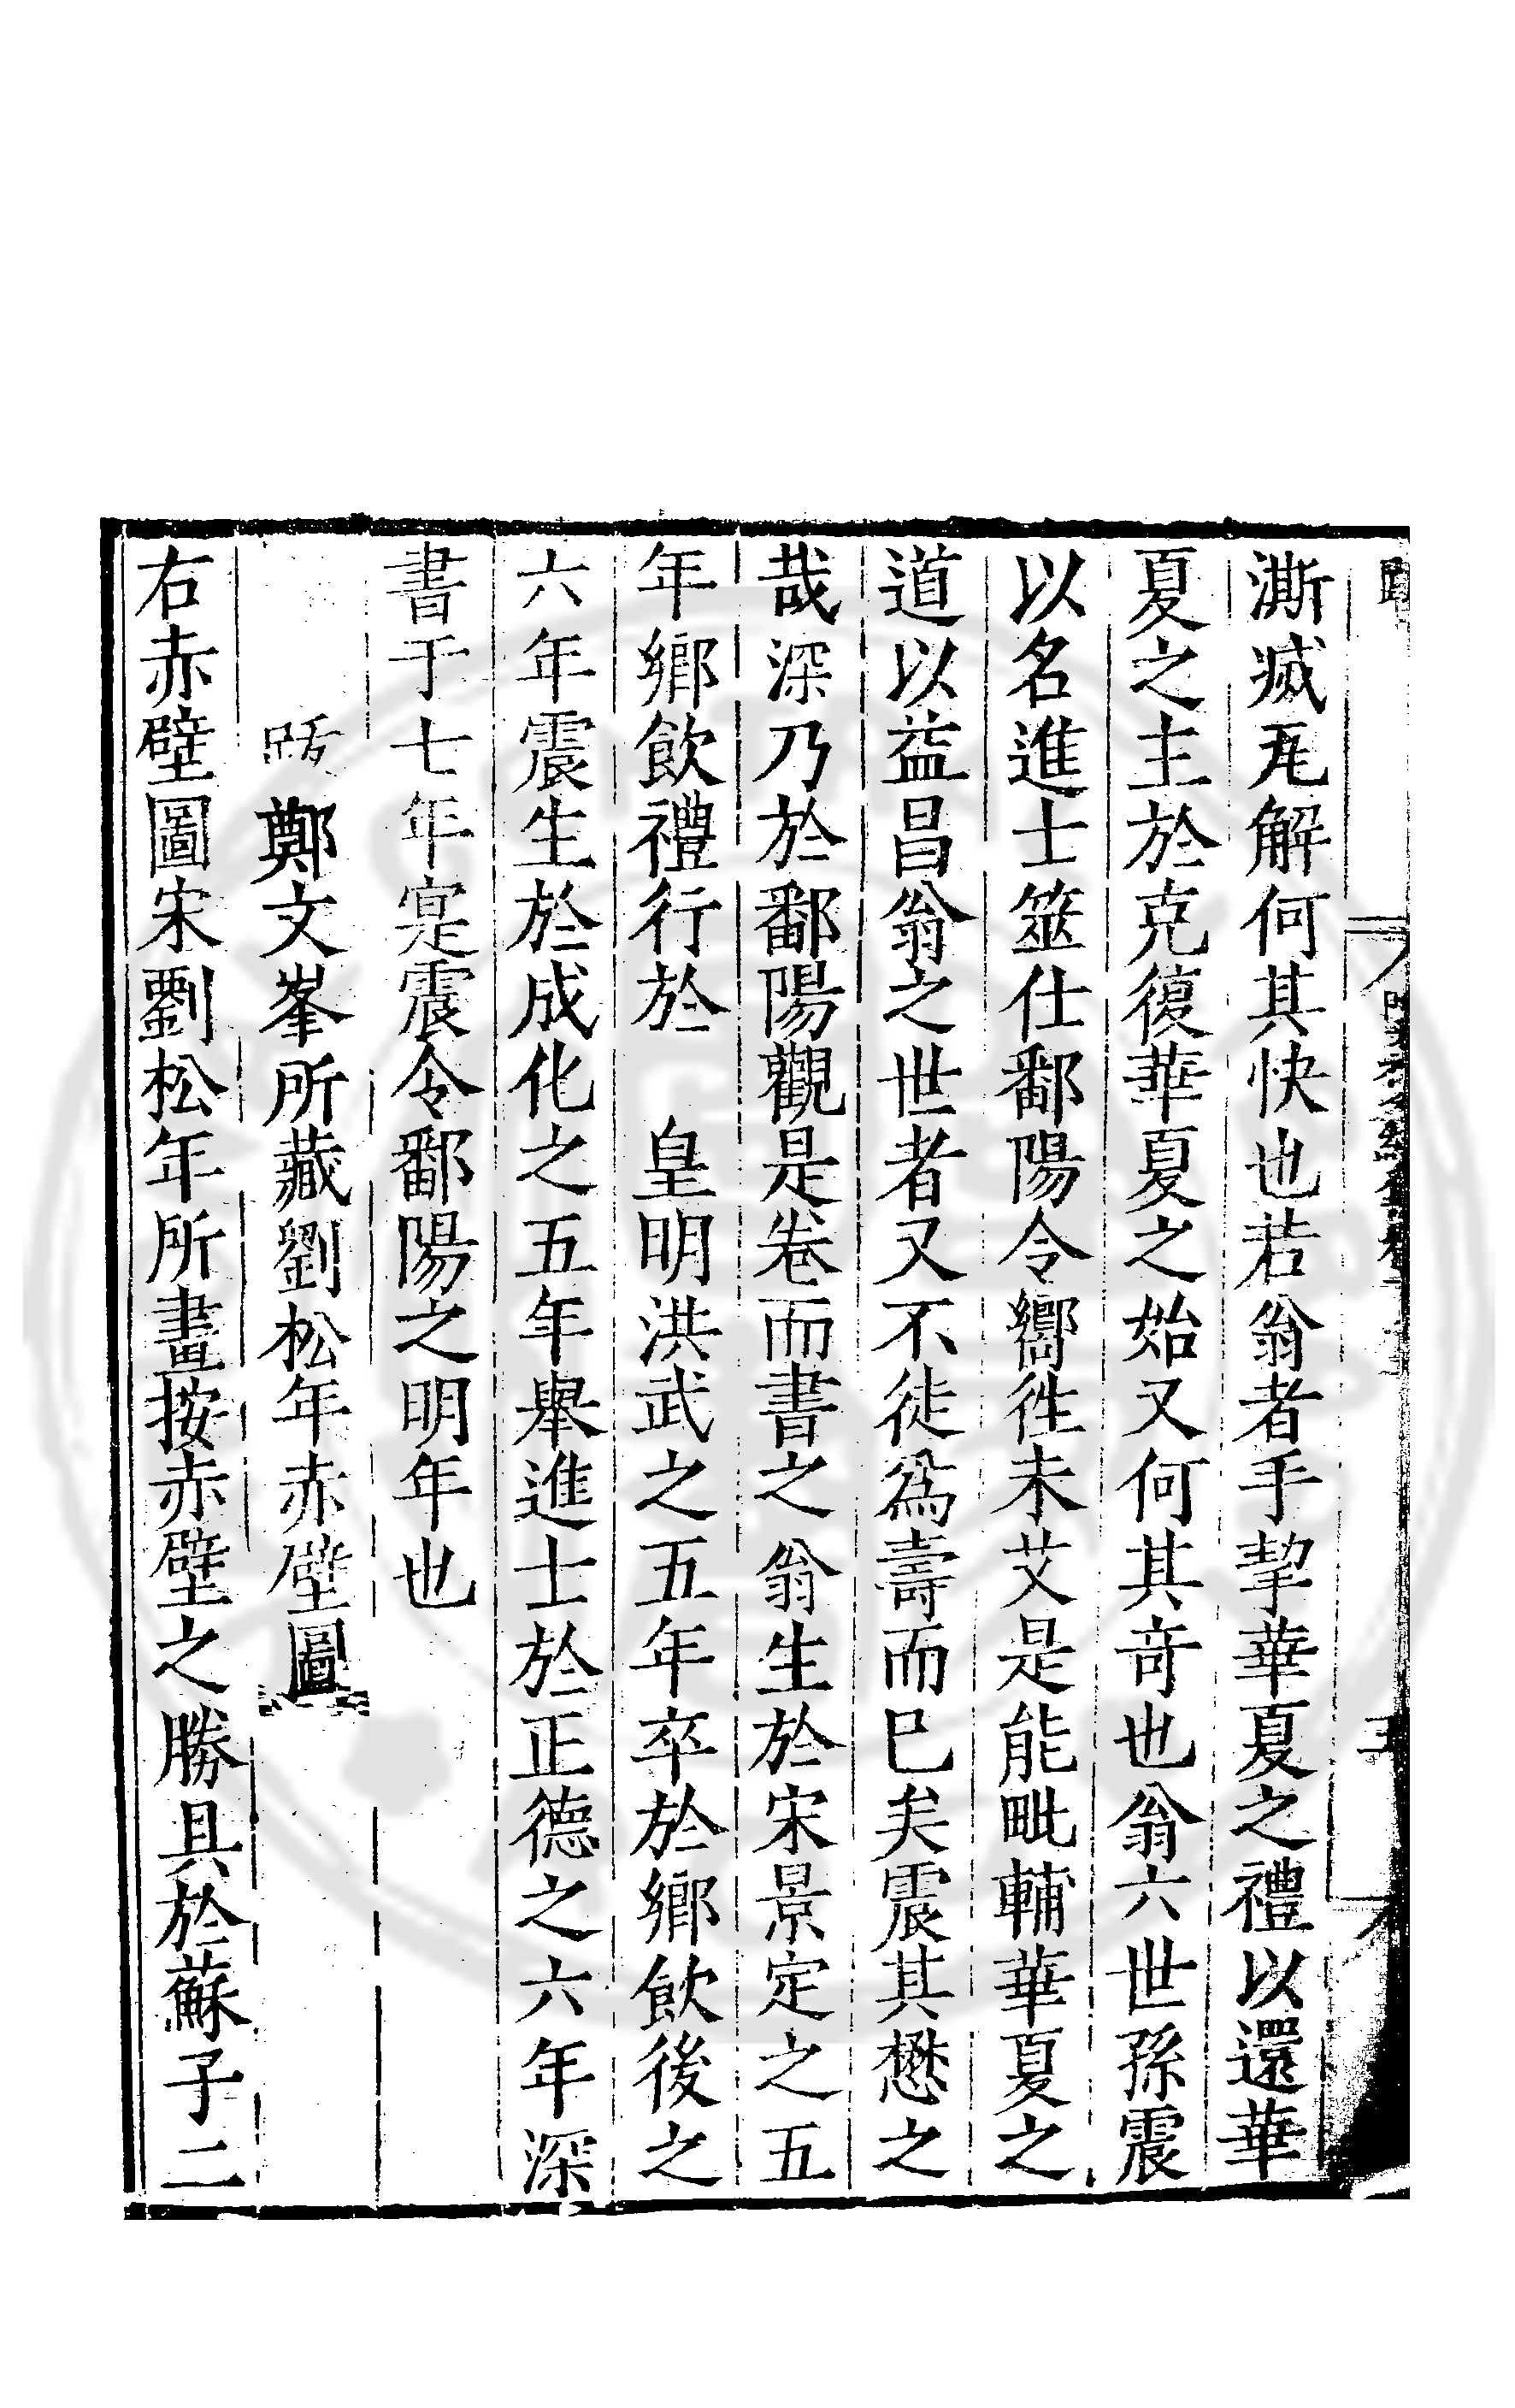 澌滅瓦解何其快也若翁者手挈華夏之禮以還華
夏之主於克復華夏之始又何其竒也翁六世孫震
以名進士筮仕鄱陽令嚮徃未艾是能毗輔華夏之
道以益昌翁之世者又不徒爲壽而已矣震其懋之
哉深乃於鄱陽觀是卷而書之翁生於宋景定之五
年鄉飲禮行於　皇明洪武之五年卒於鄉飲後之
六年震生於成化之五年舉進士於正德之六年深
書于七年寔震令鄱陽之明年也
跋鄭文峯所藏劉松年赤壁圖
右赤壁圖宋劉松年所畫按赤壁之勝具於蘇子二